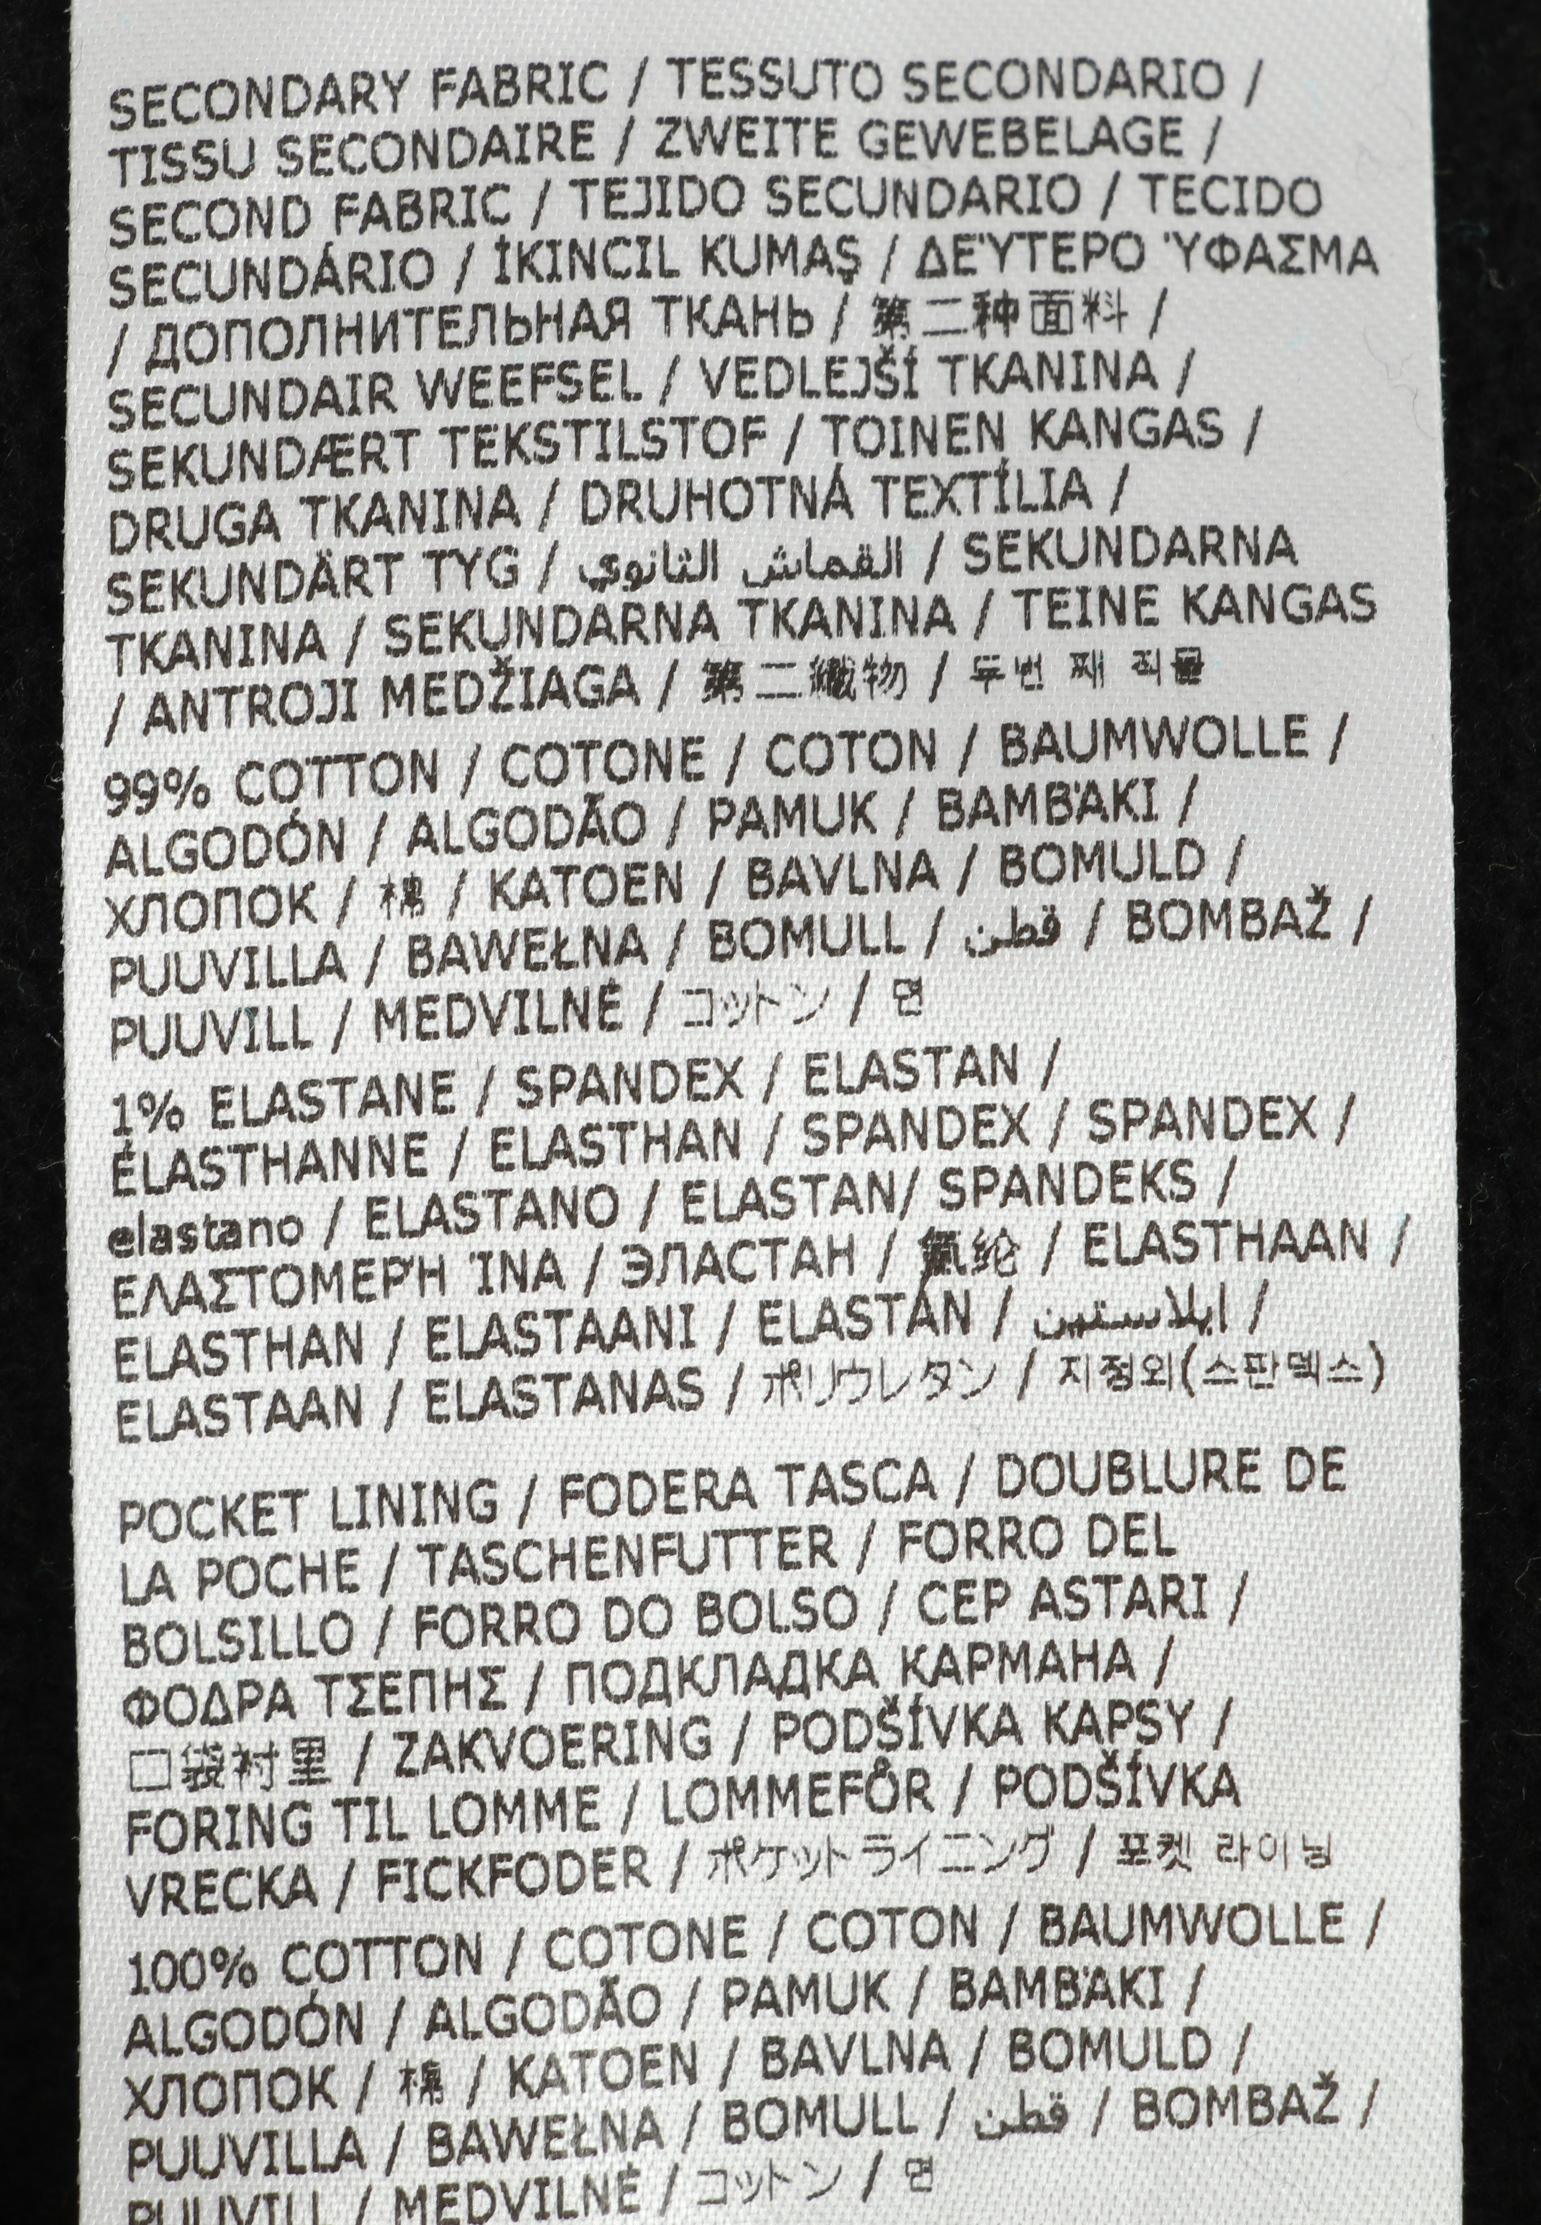 SECONDARY FABRIC / TESSUTO SECONDARIO /
TISSU SECONDAIRE / ZWEITE GEWEBELAGE /
SECOND FABRIC / TEJIDO SECUNDARIO / TECIDO
SECUNDÁRIO / İKINCIL KUMAŞ / ΔΕ'ΥΤΕΡΟ 'ΥΦΑΣΜΑ
/ ДОПОЛНИТЕЛЬНАЯ ТКАНЬ / 第二种面料 /
SECUNDAIR WEEFSEL / VEDLEJŠÍ TKANINA /
SEKUNDÆRT TEKSTILSTOF / TOINEN KANGAS /
DRUGA TKANINA / DRUHOTNÁ TEXTÍLIA /
SEKUNDÄRT TYG / القماش الثانوي / SEKUNDARNA
TKANINA / SEKUNDARNA TKANINA / TEINE KANGAS
/ ANTROJI MEDŽIAGA / 第二織物 / 두번 째 직물
99% COTTON / COTONE / COTON / BAUMWOLLE /
ALGODÓN / ALGODÃO / PAMUK / ΒΑΜΒ'ΑΚΙ /
ХЛОПОК / 棉 / KATOEN / BAVLNA / BOMULD /
PUUVILLA / BAWEŁNA / BOMULL / قطن / BOMBAŽ /
PUUVILL / MEDVILNĖ / コットン / 면
1% ELASTANE / SPANDEX / ELASTAN /
ÉLASTHANNE / ELASTHAN / SPANDEX / SPANDEX /
elastano / ELASTANO / ELASTAN/ SPANDEKS /
ΕΛΑΣΤΟΜΕΡ'Η 'ΙΝΑ / ЭЛАСТАН / 氨纶 / ELASTHAAN /
ELASTHAN / ELASTAANI / ELASTÁN / ايلاستين /
ELASTAAN / ELASTANAS / ポリウレタン / 지정외(스판덱스)
POCKET LINING / FODERA TASCA / DOUBLURE DE
LA POCHE / TASCHENFUTTER / FORRO DEL
BOLSILLO / FORRO DO BOLSO / CEP ASTARI /
ΦΟΔΡΑ ΤΣΕΠΗΣ / ПОДКЛАДКА КАРМАНА /
口袋衬里 / ZAKVOERING / PODŠÍVKA KAPSY /
FORING TIL LOMME / LOMMEFÔR / PODŠÍVKA
VRECKA / FICKFODER / ポケットライニング / 포켓 라이닝
100% COTTON / COTONE / COTON / BAUMWOLLE /
ALGODÓN / ALGODÃO / PAMUK / ΒΑΜΒ'ΑΚΙ /
ХЛОПОК / 棉 / KATOEN / BAVLNA / BOMULD /
PUUVILLA / BAWEŁNA / BOMULL / قطن / BOMBAŽ /
PUUVILL / MEDVILNĖ / コットン / 면